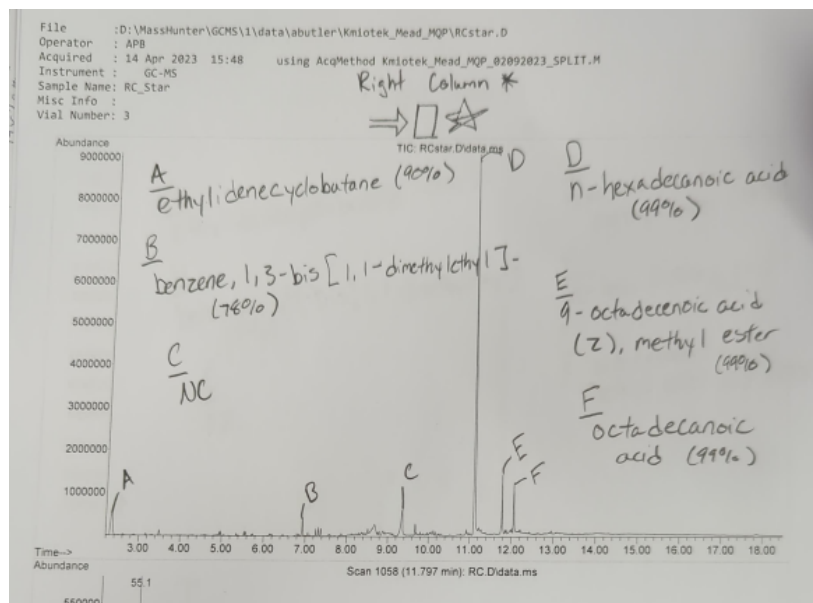 File :D:\MassHunter\GCMS\1\data\abutler\Kmiotek_Mead_MQP\RCstar.D
Operator : APB
Acquired : 14 Apr 2023 15:48 using AcqMethod Kmiotek_Mead_MQP_02092023_SPLIT.M
Instrument : GC-MS
Sample Name: RC_Star
Misc Info :
Vial Number: 3
Right Column *
Abundance
TIC: RCstar.D\data.ms
9000000
8000000
7000000
6000000
5000000
4000000
3000000
2000000
1000000
A
ethylidenecyclobutane (90%)
B
benzene, 1,3-bis[1,1-dimethylethyl]-
(78%)
C
NC
D
D
n-hexadecanoic acid
(99%)
E
9-octadecenoic acid
(Z), methyl ester
(99%)
F
octadecanoic
acid (99%)
A
B
C
E
F
3.00 4.00 5.00 6.00 7.00 8.00 9.00 10.00 11.00 12.00 13.00 14.00 15.00 16.00 17.00 18.00
Time-->
Abundance
Scan 1058 (11.797 min): RC.D\data.ms
55.1